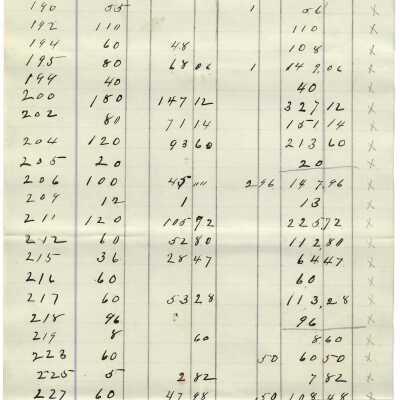 190 55 1 56 x
192 110 110 x
194 60 48 108 x
195 80 68 06 1 149 06 x
199 40 40 x
200 180 147 12 327 12 x
202 80 71 14 151 14 x
204 120 93 60 213 60 x
205 20 20 x
206 100 45 "" 2 96 147.96 x
209 12 1 13 x
211 120 105 72 225 72 x
212 60 52 80 112.80 x
215 36 28 47 64 47 x
216 60 60 x
217 60 53 28 113.28 x
218 96 96 x
219 8 60 8 60 x
223 60 50 60 50 x
225 5 2 82 7 82 x
227 60 47 98 50 108 48 x